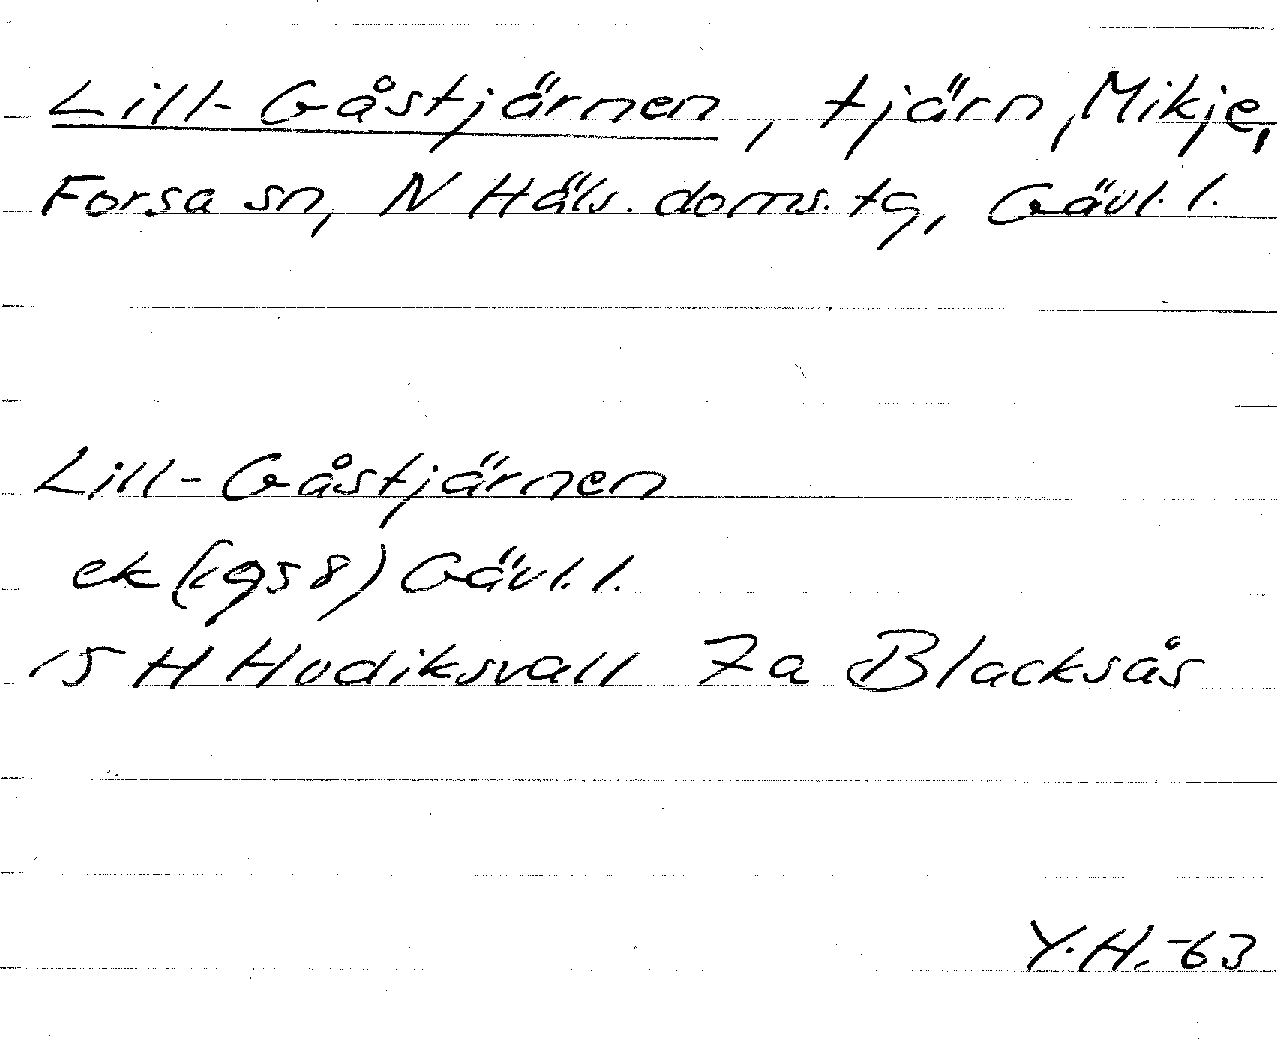 Lill-Gåstjärnen, tjärn, Mikje,
Forsa sn, N Häls. doms. tg, Gävl. l.
Lill-Gåstjärnen
ek (1958) Gävl. l.
15 H Hudiksvall 7a Blacksås
Y.H.-63